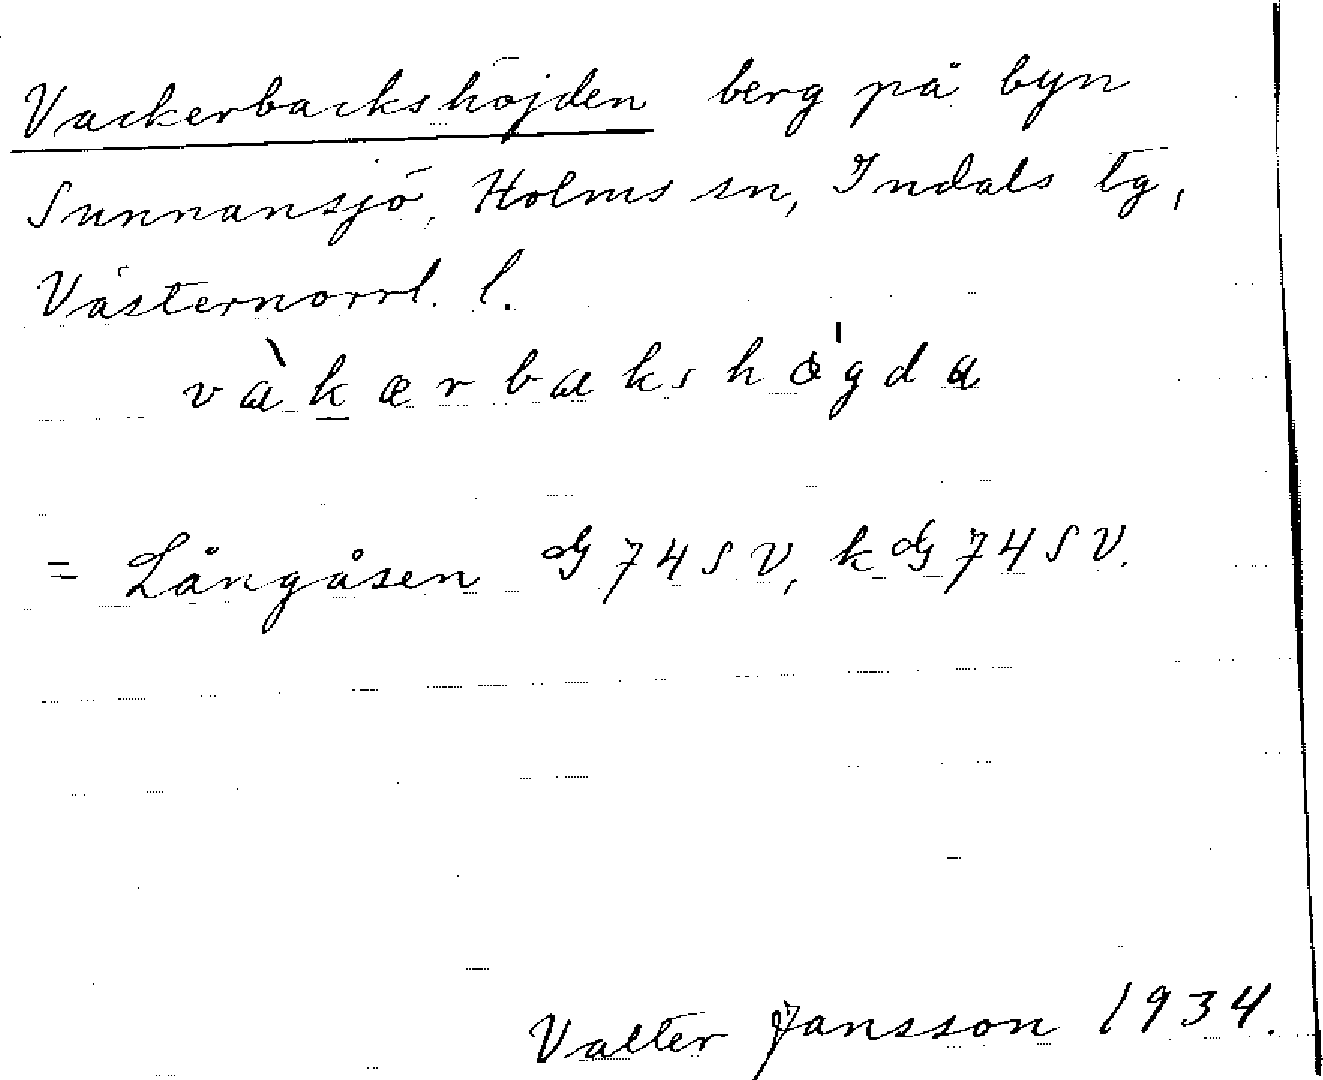 Vackerbackshöjden berg på byn
Sunnansjö, Holms sn, Indals tg,
Västernorrl. l.
vàkærbakshögda
= Långåsen G74SV, kG74SV.
Valter Jansson 1934.